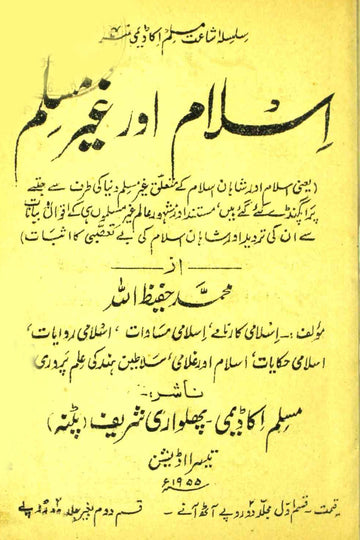 سلسلۂ اشاعت مسلم اکاڈیمی نمبر
اسلام اور غیر مسلم
(یعنی اسلام اور شاہان اسلام کے متعلق غیر مسلم دنیا کی طرف سے جتنے
پراپگنڈے کئے گئے ہیں، مستند اور مشہور عالم غیر مسلموں ہی کے اقوال و بیانات
سے ان کی تردید اور شاہان اسلام کی بے تعصبی کا اثبات)
از
محمد حفیظ اللہ
مؤلف:۔ اسلامی کارنامے، اسلامی مساوات، اسلامی روایات،
اسلامی حکایات، اسلام اور غلامی، سلاطین ہند کی علم پروری
ناشر:۔
مسلم اکاڈیمی۔ پھلواری شریف (پٹنہ)
تیسرا اڈیشن
۱۹۵۵ء
قیمت۔ قسم اول مجلد دو روپے آٹھ آنے۔ قسم دوم بغیر جلد روپے